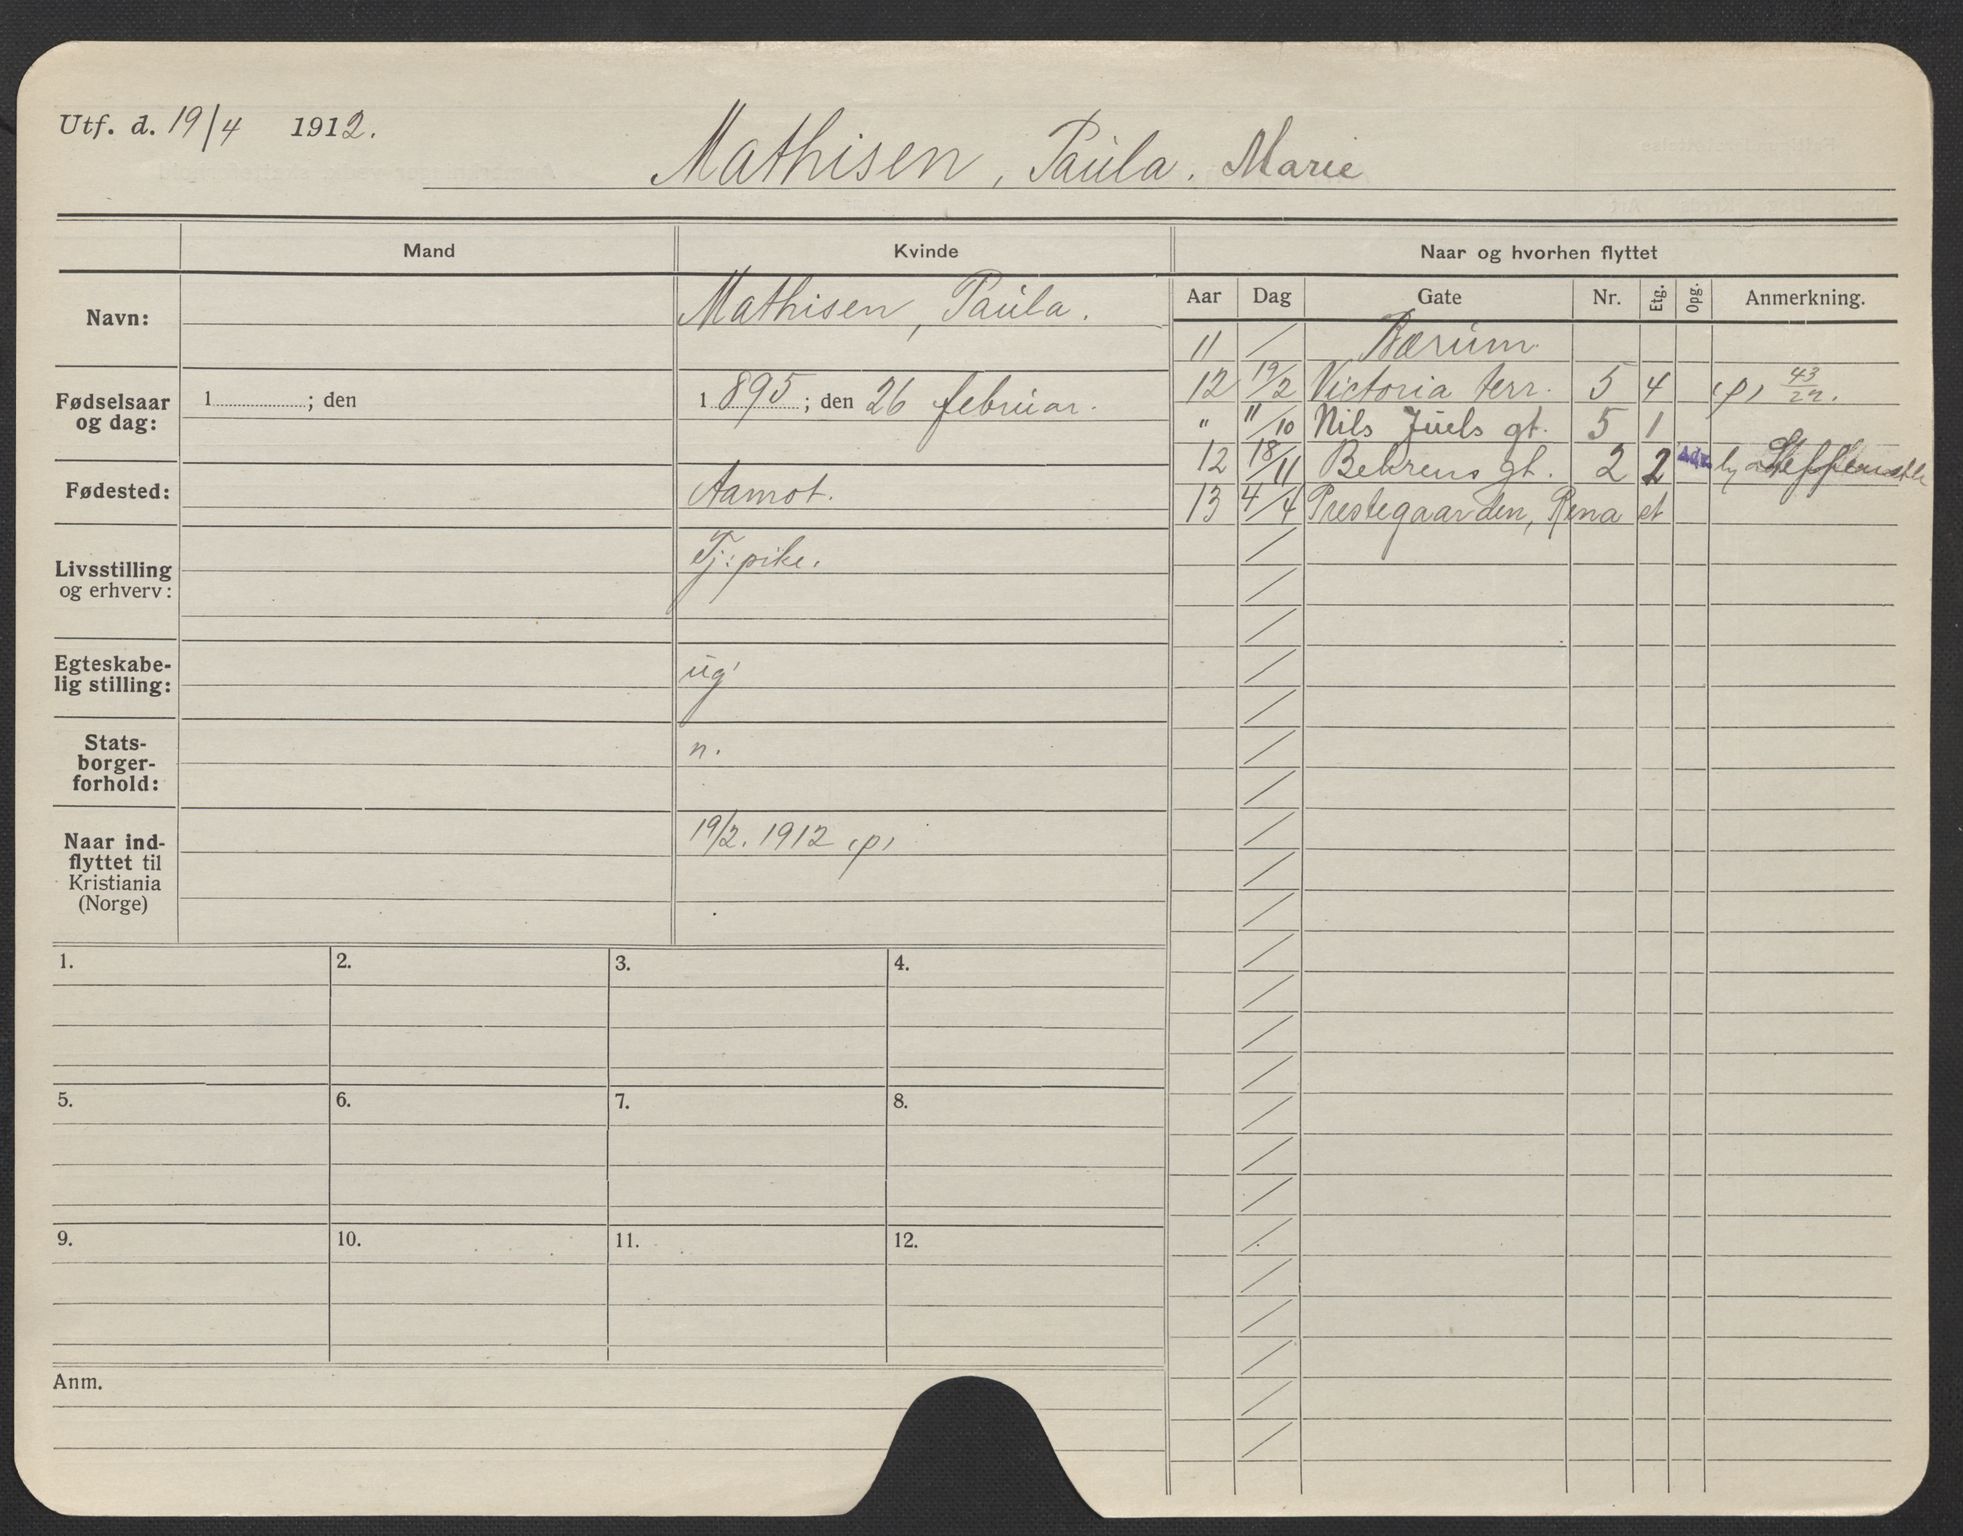 Utf. d. 19/4 1912.
Mathisen, Paula. Marie
Mand Kvinde Naar og hvorhen flyttet
Navn: Mathisen, Paula.
Fødselsaar og dag: 1 ; den 1 895 ; den 26 februar.
Fødested: Aamot.
Livsstilling og erhverv: Tj: pike.
Egteskabe-
lig stilling: ug
Stats-
borger-
forhold: n.
Naar ind-
flyttet til
Kristiania
(Norge) 19/2. 1912 (p)
Aar Dag Gate Nr. Etg. Opg. Anmerkning.
11 / Bærum
12 19/2 Victoria terr. 5 4 (p) 43/22.
" 11/10 Nils Juels gt. 5 1
12 18/11 Behrens gt. 2 2 Adr.
13 4/4 Prestegaarden, Rena st
1. 2. 3. 4.
5. 6. 7. 8.
9. 10. 11. 12.
Anm.